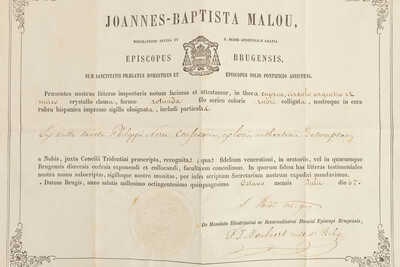 JOANNES-BAPTISTA MALOU,
MISERATIONE DIVINA ET S. SEDIS APOSTOLICÆ GRATIA
EPISCOPUS BRUGENSIS,
SUÆ SANCTITATIS PRÆLATUS DOMESTICUS ET EPISCOPUS SOLIO PONTIFICIO ASSISTENS.
Præsentes nostras litteras inspecturis notum facimus et attestamur, in theca cuprea, circulo argenteo et
unico crystallo clausa, formæ rotunda filo serico coloris rubri colligata, nostroque in cera
rubra hispanica impresso sigillo obsignata, includi particulam
Philippi Nerii, Confessoris,
a Nobis, juxta Concilii Tridentini præscripta, recognitam, quæ fidelium venerationi, in oratoriis, vel in quacumque
Brugensis diœcesis ecclesia exponendi et collocandi, facultatem concedimus. In quorum fidem has litteras testimoniales
nostra manu subscriptas, sigilloque nostro munitas, per infra scriptum Secretarium nostrum expediri mandavimus.
Datum Brugis, anno salutis millesimo octingentesimo quinquagesimo Octavo mensis Julii die
De Mandato Illustrissimi ac Reverendissimi Domini Episcopi Brugensis,